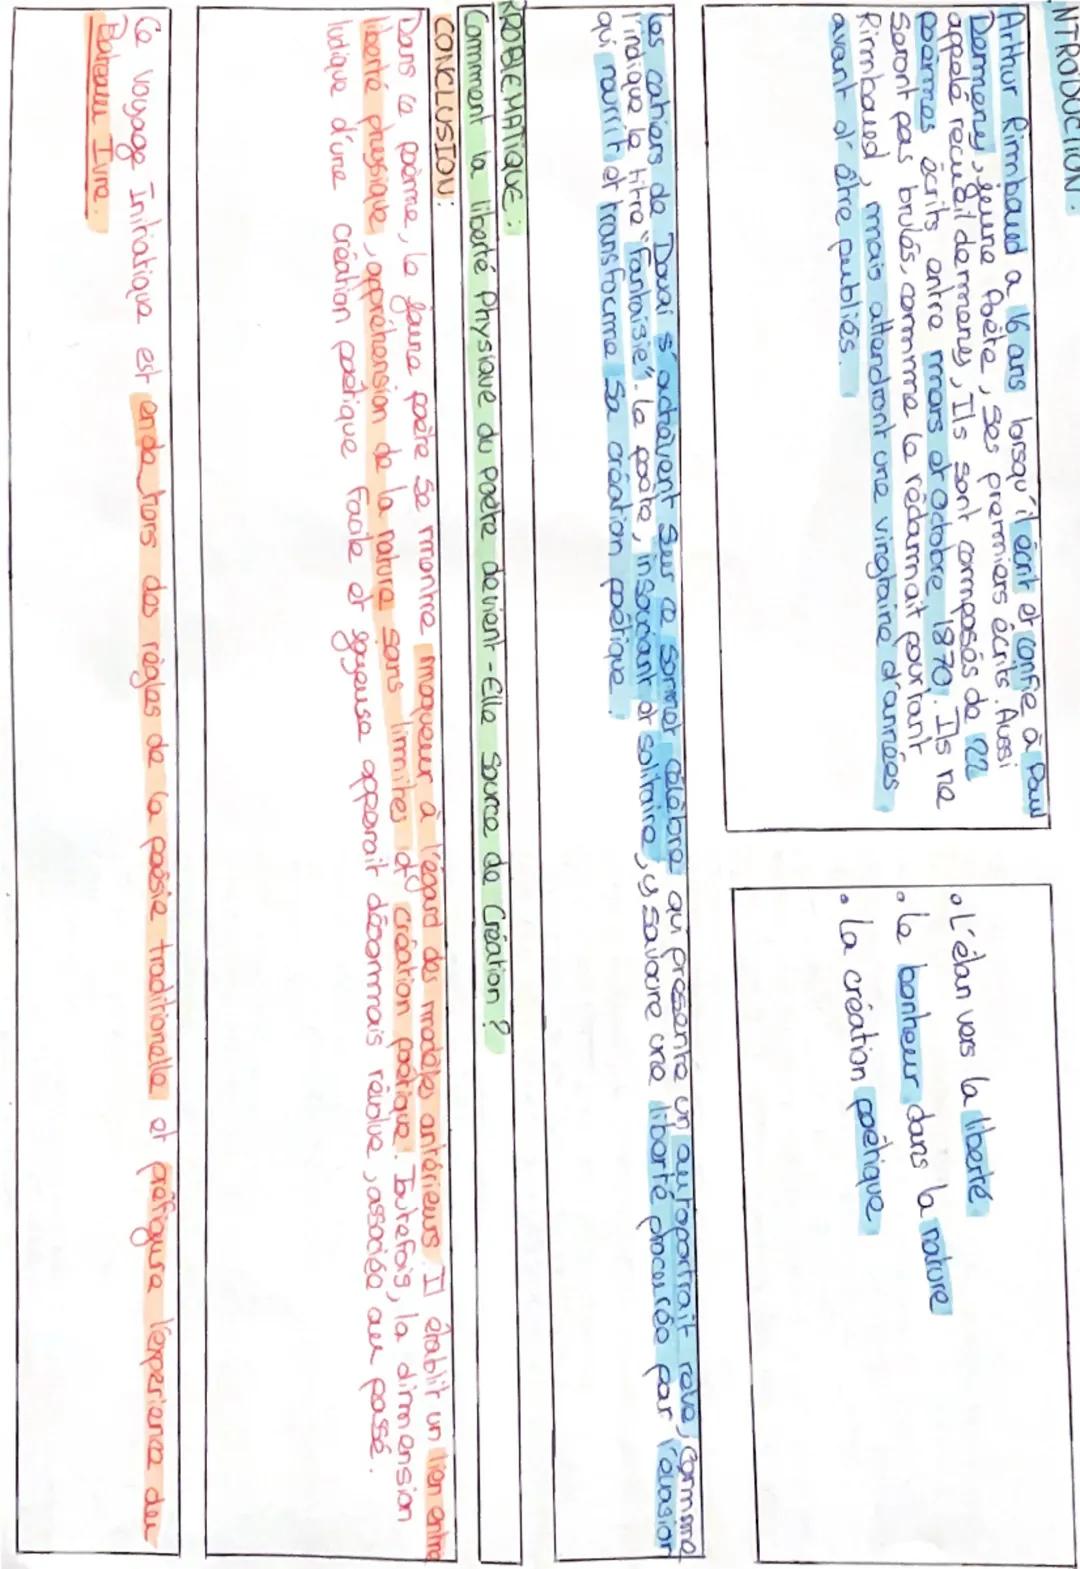 INTRODUCTION :
Arthur Rimbaud a 16 ans lorsqu'il écrit et confie à Paul
Demeny, jeune Poète, ses premiers écrits. Aussi
appelé recueil demeny, Ils sont composés de 22
poèmes écrits entre mars et octobre 1870. Ils ne
seront pas brulés, comme le rédamait pourtant
Rimbaud, mais attendront une vingtaine d'années
avant d'être publiés.
• L'élan vers la liberté
• le bonheur dans la nature
• la création poétique
Les cahiers de Douai s'achèvent sur ce sonnet célèbre qui présente un autoportrait rêvé, comme
l'indique le titre "fantaisie". Le poète, insouciant et solitaire, y savoure une liberté procurée par l'évasion
qui nourrit et transforme sa création poétique.
PROBLEMATIQUE :
Comment la liberté Physique du poète devient-Elle source de Création ?
CONCLUSION :
Dans ce poème, le jeune poète se montre moqueur à l'égard des modèles antérieurs. Il établit un lien entre
liberté physique, appréhension de la nature sans limites et création poétique. Toutefois, la dimension
ludique d'une création poétique facile et joyeuse apparait désormais révolue, associée au passé.
Ce voyage Initiatique est en dehors des règles de la poésie traditionelle et préfigure l'experience du
Bateau Ivre.